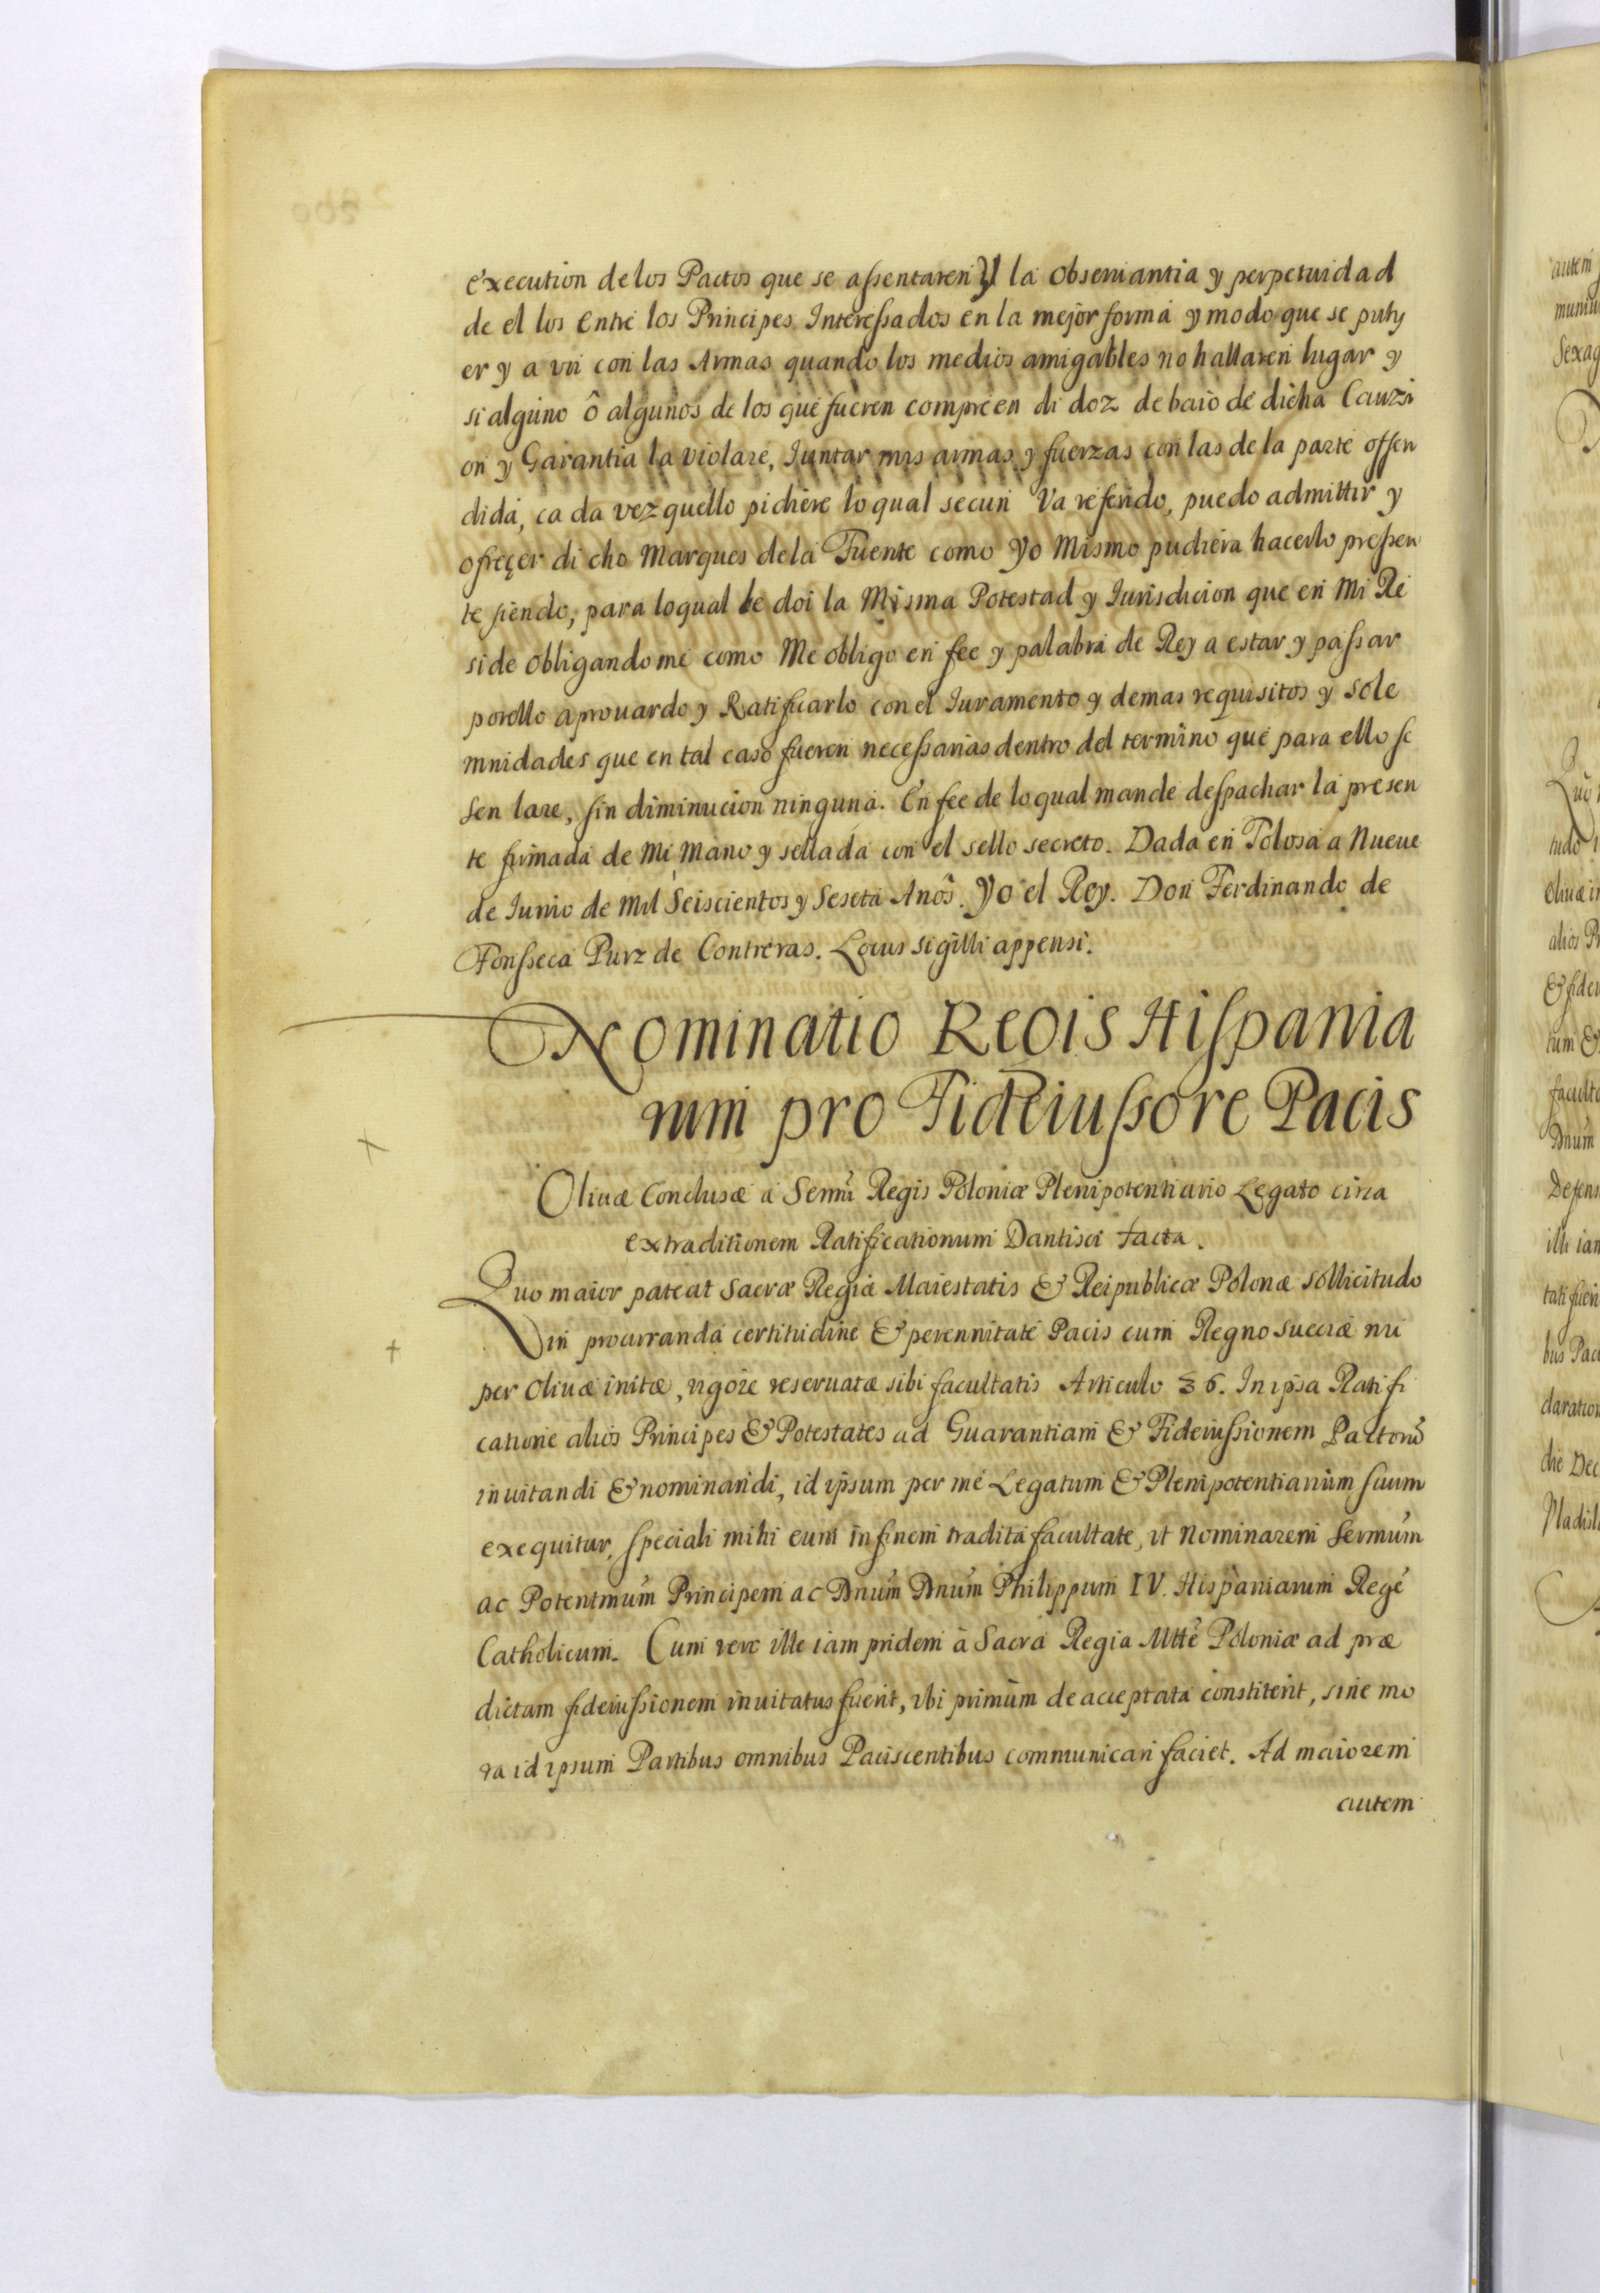 execution de los Pactos que se assentaren y la obseruantia y perpetuidad
de el los entre los Principes Interessados en la mejor forma y modo que se puty
er y a vn con las Armas quando los medios amigables no hallaren lugar y
si alguno ô algunos de los que fueren compreen di doz de baio de dicha Cauzi
on y Garantia la violare, Iuntar mis armas y fuerzas con las de la parte offen
dida, ca da vez quello pidiere lo qual secun Va referido, puedo admittir y
ofreçer di cho Marques dela Fuente como Yo Mismo pudiera hacerlo pressen
te siendo; para loqual le doi la Misma Potestad y Iurisdicion que en Mi Re
side obligandome como Me obligo en fee y palabra de Rey a estar y passar
porello aprouardo y Ratificarlo con el Iuramento y demas requisitos y sole
mnidades que en tal caso fueren necessarias dentro del termino que para ello se
sen lare, sin diminucion ninguna. En fee de lo qual mande despachar la presen
te firmada de Mi Mano y sellada con el sello secreto. Dada en Tolosa a Nueue
de Iunio de Mil Seiscientos y Seseta Anõs. Yo el Rey. Don Ferdinando de
Fonsseca Purz de Contreras. Locus sigilli appensi.
Nominatio Regis Hispania
rum pro Fideiussore Pacis
Oliuæ Conclusæ a Sermi Regis Poloniæ Plenipotentiario Legato circa
extraditionem Ratificationum Dantisci facta.
Quo maior pateat Sacræ Regiæ Maiestatis & Reipublicæ Polonæ sollicitudo
in procurranda certitudine & perennitate Pacis cum Regno Sueciæ nu
per Oliuæ initæ, vigore reseruatæ sibi facultatis Articulo 36. In ipsa Ratifi
catione alios Principes & Potestates ad Guarantiam & Fideiussionem Pactorũ
inuitandi & nominandi, id ipsum per me Legatum & Plenipotentiarium suum
exequitur, speciali mihi eum in finem tradita facultate, vt Nominarem Sermum
ac Potentmum Principem ac Dnum Dnum Philippum IV. Hispaniarum Regẽ
Catholicum. Cum vero ille iam pridem à Sacra Regia Mtte Poloniæ ad præ
dictam fideiussionem inuitatus fuerit, vbi primum de acceptata constiterit, sine mo
ra id ipsum Partibus omnibus Paciscentibus communicari faciet. Ad maiorem
autem